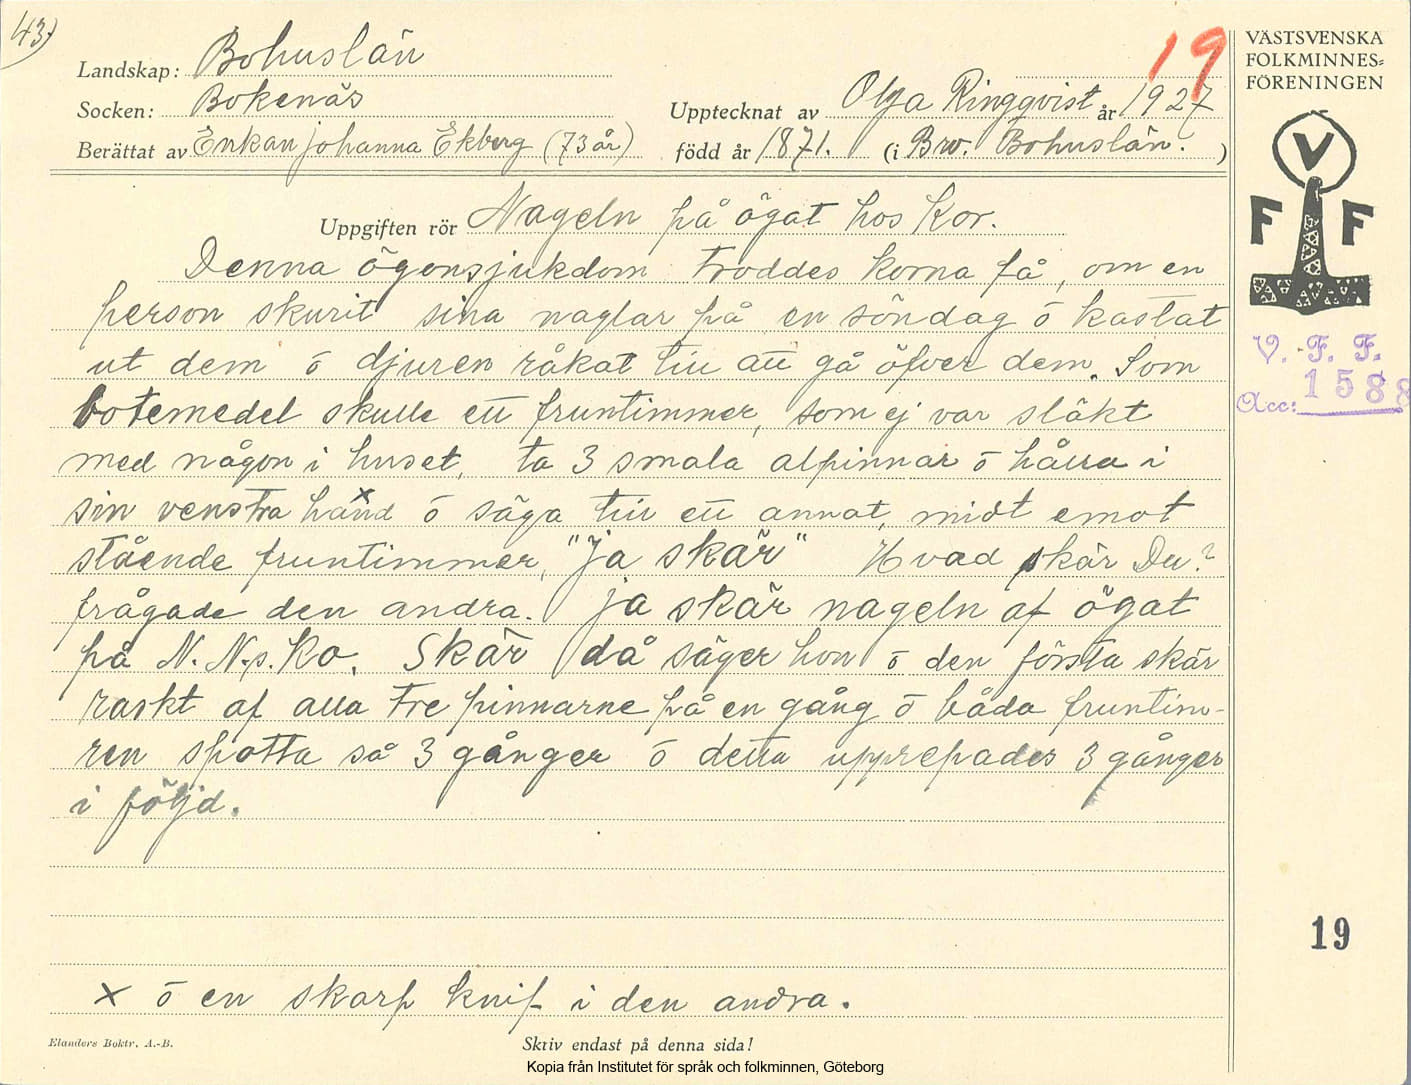 43)
Landskap: Bohuslän
19
VÄSTSVENSKA
FOLKMINNES=
FÖRENINGEN
Socken: Bokenäs
Upptecknat av Olga Ringqvist år 1927
Berättat av Enkan Johanna Ekberg (73 år)
född år 1871. (i Bro. Bohuslän. )
V
F F
Uppgiften rör Nageln på ögat hos Kor.
Denna ögonsjukdom troddes korna få, om en
person skurit sina naglar på en söndag ō kastat
ut dem ō djuren råkat till att gå öfver dem. Som
botemedel skulle ett fruntimmer, som ej var släkt
med någon i huset, ta 3 smala alpinnar ō hålla i
sin venstra hand x ō säga till ett annat, midt emot
stående fruntimmer, "Ja skär" Hvad skär Du?
frågade den andra. Ja skär nageln af ögat
på N. N.s. Ko. Skär då säger hon ō den första skär
raskt af alla tre pinnarne på en gång ō båda fruntim-
ren spotta så 3 gånger ō detta upprepades 3 gånger
i följd.
x ō en skarp knif i den andra.
V. F. F.
Acc: 1588
19
Elanders Boktr. A.-B.
Skriv endast på denna sida!
Kopia från Institutet för språk och folkminnen, Göteborg